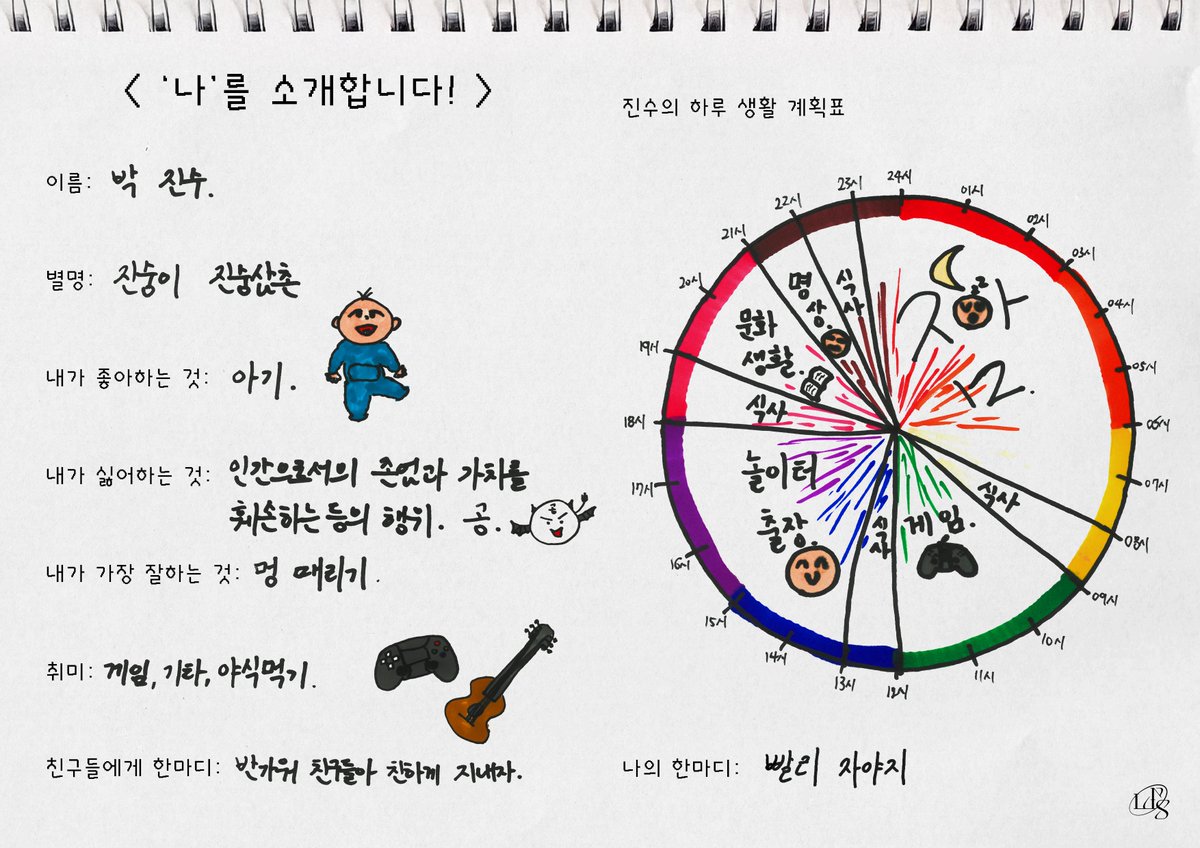 < '나'를 소개합니다! >
이름: 박 진수.
별명: 진숭이 진숭삾촌
내가 좋아하는 것: 아기.
내가 싫어하는 것: 인간으로서의 존엄과 가치를
훼손하는 등의 행위. 공.
내가 가장 잘하는 것: 멍 때리기.
취미: 게임, 기타, 야식먹기.
친구들에게 한마디: 반가워 친구들아 친하게 지내자.
진수의 하루 생활 계획표
24시
01시
02시
03시
04시
05시
06시
07시
08시
09시
10시
11시
12시
13시
14시
15시
16시
17시
18시
19시
20시
21시
22시
23시
zz
식사
게임.
식사
놀이터
출장.
식사
문화
생활.
명상.
식사
나의 한마디: 빨리 자야지